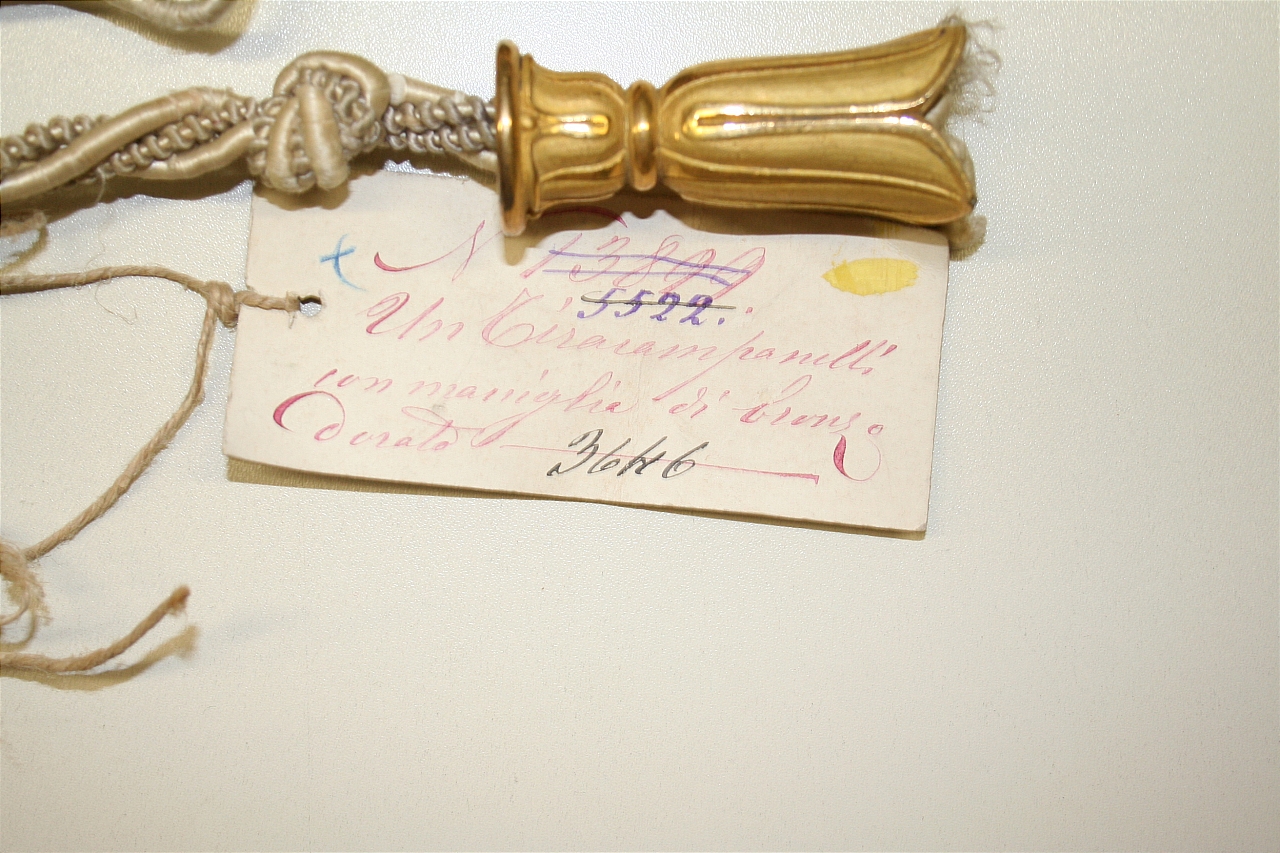 N 13899
5522.
Un Tiracampanelli
con maniglia di bronzo
dorato 3646